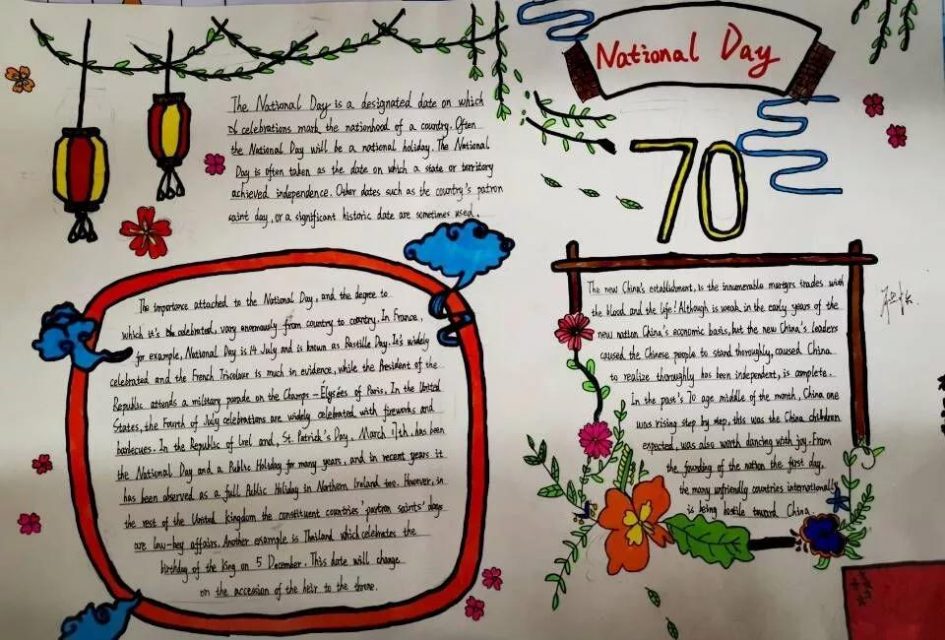 National Day
70
The National Day is a designated date on which
celebrations mark the nationhood of a country. Often
the National Day will be a national holiday. The National
Day is often taken as the date on which a state or territory
achieved independence. Other dates such as the country's patron
saint day, or a significant historic date are sometimes used.
The importance attached to the National Day, and the degree to
which it's celebrated, vary enormously from country to country. In France,
for example, National Day is 14 July and is known as Bastille Day. It's widely
celebrated and the French Tricolour is much in evidence, while the President of the
Republic attends a military parade on the Champs-Élysées of Paris. In the United
States, the Fourth of July celebrations are widely celebrated with fireworks and
barbecues. In the Republic of Irel and, St. Patrick's Day, March 17th, has been
the National Day and a Public Holiday for many years, and in recent years it
has been observed as a full Public Holiday in Northern Ireland too. However, in
the rest of the United kingdom the constituent countries' patron saints' days
are low-key affairs. Another example is Thailand which celebrates the
birthday of the King on 5 December. This date will change
on the accession of the heir to the throne.
The new China's establishment, is the innumerable martyrs trades with
the blood and the life! Although is weak in the early years of the
new nation China's economic basis, but the new China's leaders
caused the Chinese people to stand thoroughly, caused China
to realize thoroughly has been independent, is complete.
In the past's 70 age middle of the month, China one
was rising step by step, this was the China children
expected, was also worth dancing with joy. From
the founding of the nation the first day,
the many unfriendly countries internationally
is being hostile toward China.